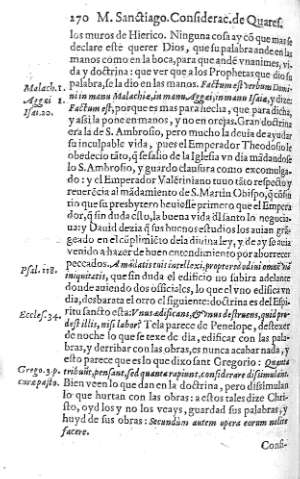 270 M. Sanctiago. Considerac. de Quares.
los muros de Hierico. Ninguna cosa ay cõ que mas se
declare este querer Dios, que su palabra ande en las
manos como en la boca, para que andẽ vnanimes, vi-
da y doctrina: que ver que a los Prophetas que dio su
Malach. 1. palabra, se la dio en las manos. Factum est verbum Domi-
Aggei 1. ni in manu Malachiæ, in manu Aggei, in mano Isaiæ, y dize:
Isai. 20. Factum est, porque es mas para hecha, que para dicha,
y assi la pone en manos, y no en orejas. Gran doctrina
era la de S. Ambrosio, pero mucho la deuia de ayudar
su inculpable vida, pues el Emperador Theodosio le
obedecio tãto, q̃ se salio de la Iglesia vn dia mãdandose
lo S. Ambrosio, y guardo clausura como excomulga-
do: y el Emperador Valẽriniano tuuo tãto respecto y
reuerẽcia al mãdamiento de S. Martin Obispo, q̃ cõsin
tio que su presbytero beuiesse primero que el Empera
dor, q̃ sin duda esto, la buena vida dl santo lo negocia-
ua: y Dauid dezia q̃ sus buenos estudios los auian grã-
geado en el cũplimiẽto de la diuina ley, y de ay se auia
venido a hazer de buen entendimiento por aborrecer
peccados. A mãdatis tuis intellexi, propterea odiui omnẽ viã
Psal. 118. iniquitatis, que sin duda el edificio no subira adelante
donde auiendo dos officiales, lo que el vno edifica vn
dia, desbarata el otro el siguiente: doctrina es del Espi-
Eccles. 34. ritu sancto esta: Vnus ædificans, & vnus destruens, quid pro-
dest illis, nisi labor? Tela parece de Penelope, destexer
de noche lo que se texe de dia, edificar con las pala-
bras, y derribar con las obras, es nunca acabar nada, y
esto parece que es lo que dixo sant Gregorio: Quanta
Grego. 3. p. tribuũt, pensant, sed quanta rapiunt, considerare dissimulant.
cura pasto. Bien veen lo que dan en la doctrina, pero dissimulan
lo que hurtan con las obras: a estos tales dize Chri-
sto, oyd los y no los veays, guardad sus palabras, y
huyd de sus obras: Secundum autem opera eorum nolite
facere.
Consi-